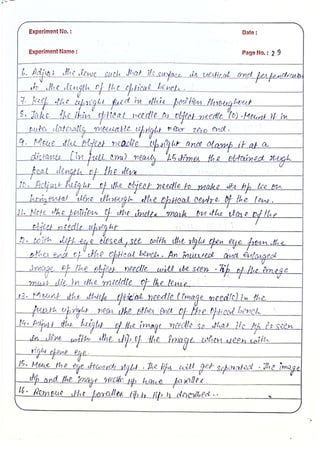 Experiment No. :
Date :
Experiment Name :
Page No. : 29
6. Adjust the lense such that its surface is vertical and perpendicular
to the length of the optical bench.
7. Keep the upright fixed in this position throughout
8. Take the thin optical needle as object needle (O). Mount it in
outer laterally moveable upright near zero end.
9. Move the object needle upright and clamp it at a
distance (in full cms) nearly 1.5 times the obtained rough
focal length of the
10. Adjust height of the object needle to make its tip lie on
horizontal line through the optical centre of the lense.
11. Note the position of the index mark on the base of the
object needle upright
12. With left eye closed, see with the right open eye from the
other end of the optical bench. An inverted and enlarged
image of the object needle will be seen. Tip of the image
must lie in the middle of the lense.
13. Mount the thick optical needle (image needle) in the
fourth upright near the other end of the optical bench
14. Adjust the height of the image needle so that its tip is seen
in line with the tip of the image when seen with
right open eye.
15. Move the eye towards right. The tips will get separated. The image
tip and the image needle tip have parallax.
16. Remove the parallax tip to tip is described...